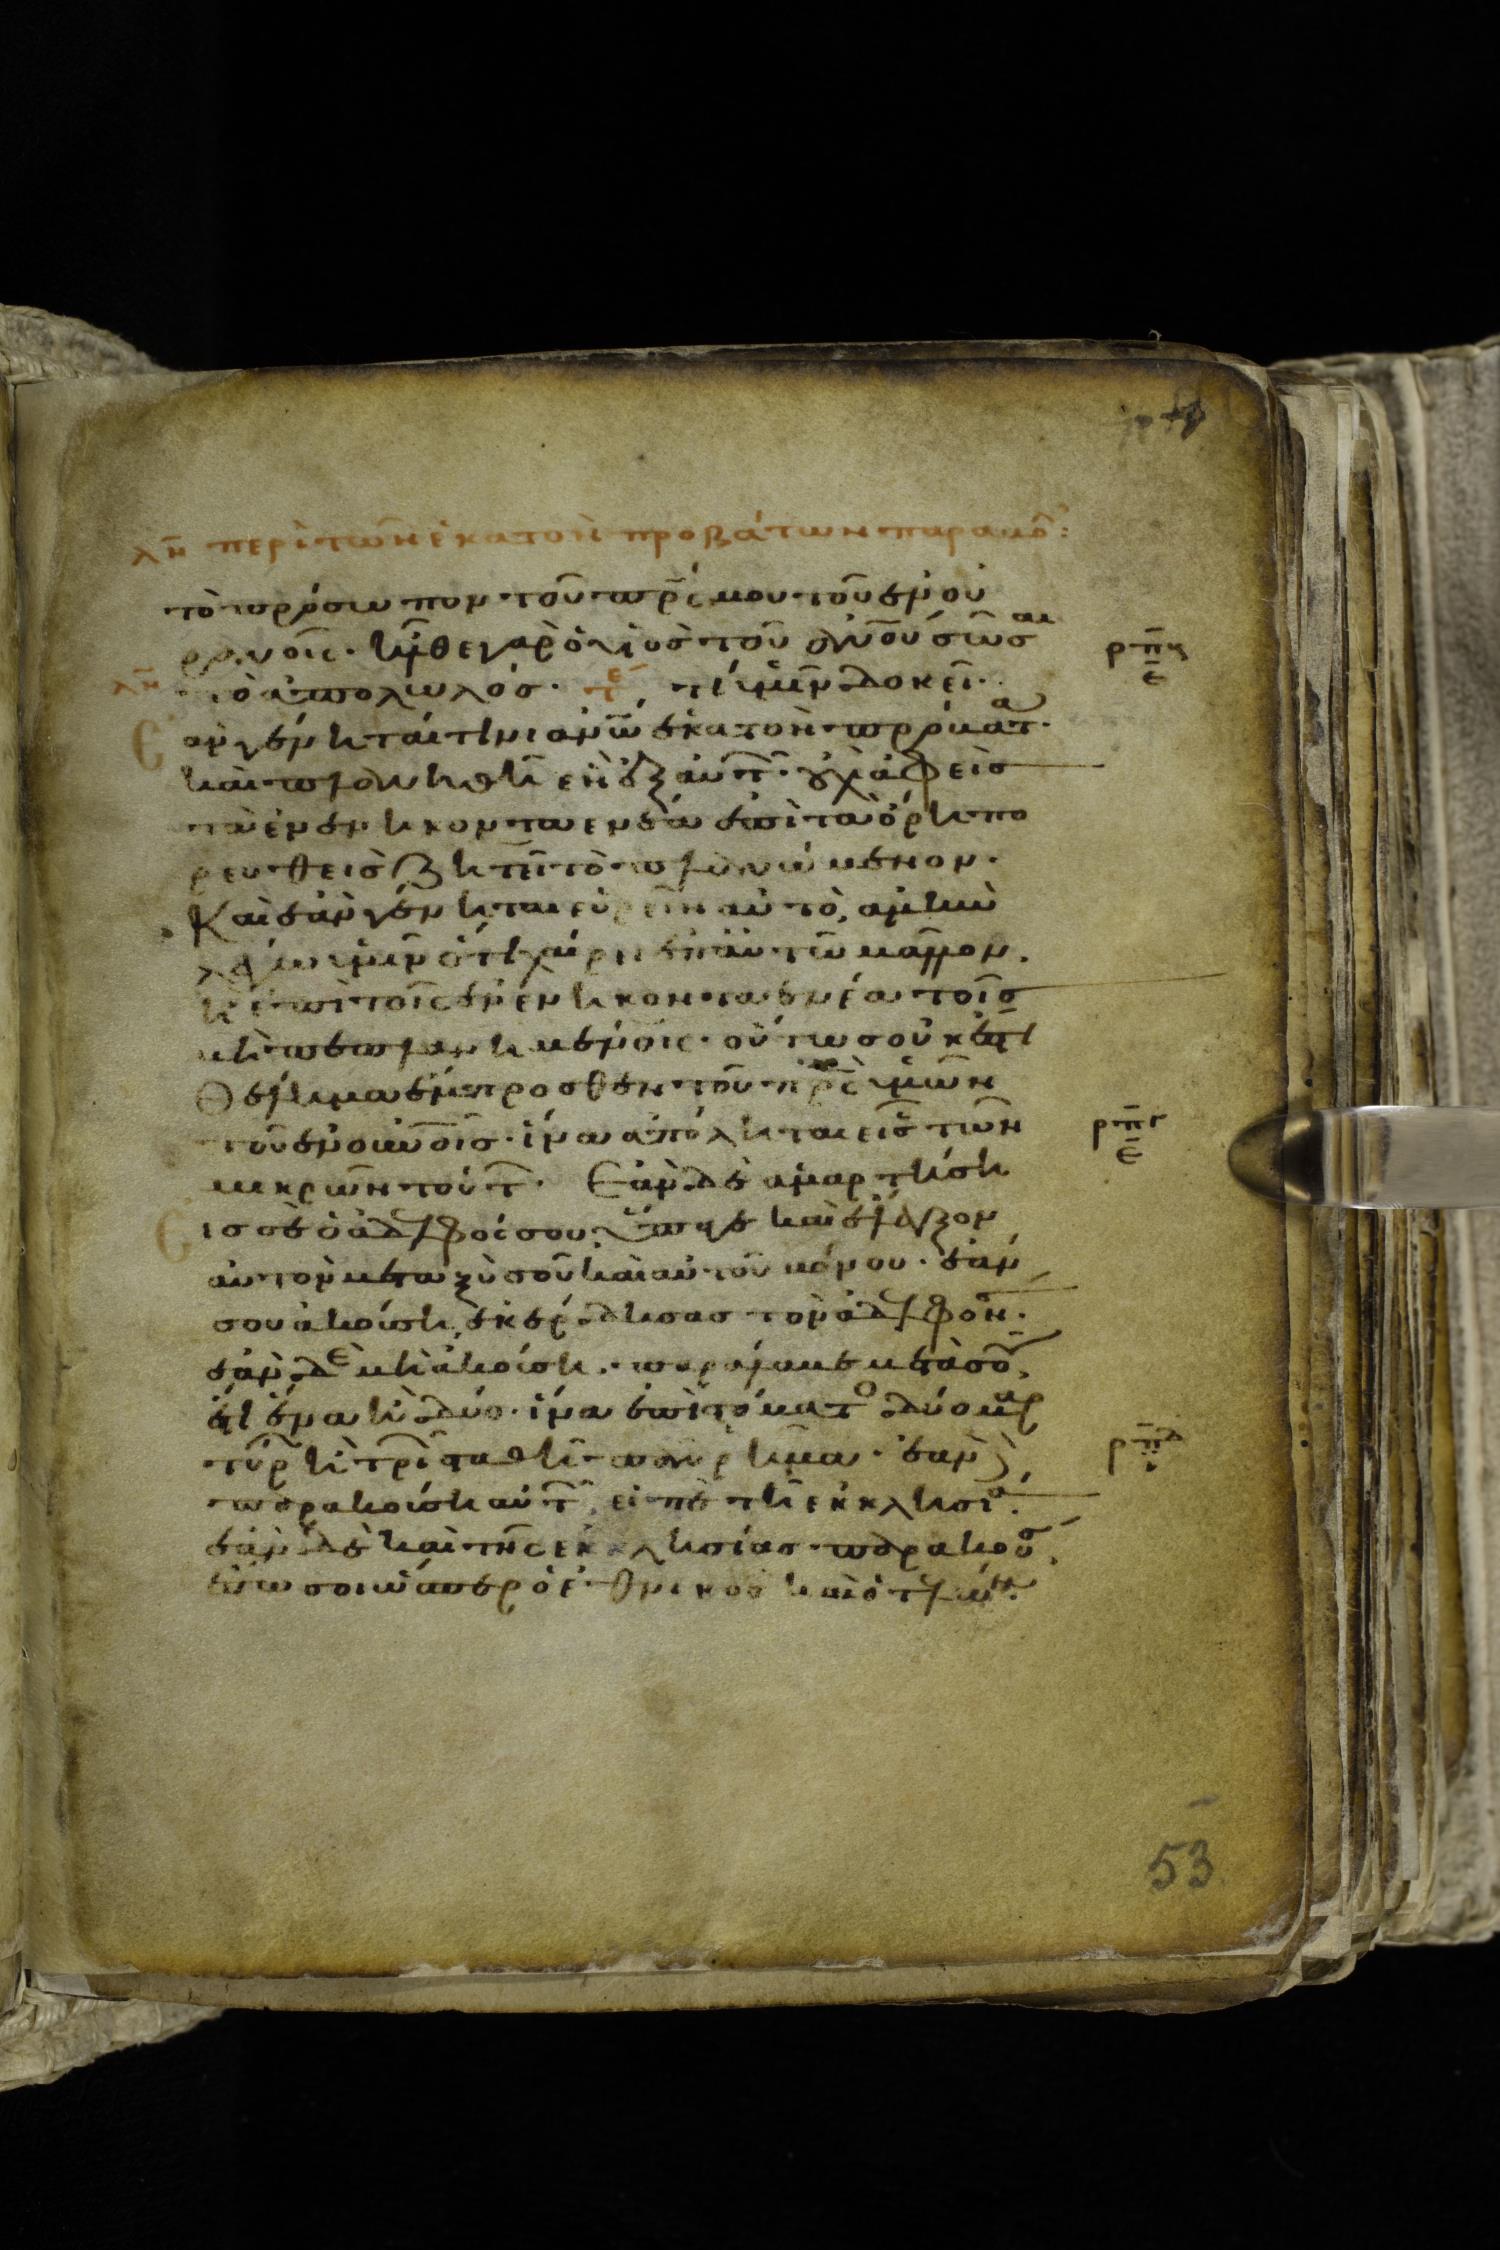 λη περὶ τῶν ἑκατὸν προβάτων παραβο:
τὸ πρόσωπον τοῦ πρς μου τοῦ ἐν οὐ
ρανοῖς. ἦλθε γὰρ ὁ υἱὸς τοῦ ἀνου σῶσαι ρπγ ε
λη τὸ ἀπολωλός. τε τί ὑμῖν δοκεῖ.
ἐὰν γένηταί τινι ἀνω ἑκατὸν πρόβατα.
καὶ πλανηθῆ ἓν ἐξ αὐτ. οὐχὶ ἀφεὶσ
τὰ ἐνενηκονταεννέα ἐπὶ τὰ ὄρη πο
ρευθεὶς ζητεῖ τὸ πλανώμενον.
Καὶ ἐὰν γένηται εὑρεῖν αὐτὸ, ἀμὴν
λέγω ὑμῖν ὅτι χαίρει ἐπ αὐτῶ μᾶλλον.
ἢ ἐπὶ τοῖς ἐνενήκοντα ἐννέα τοῖσ
μὴ πεπλανημένοις. οὕτως οὐκ ἔστι
θέλημα ἔμπροσθεν τοῦ πρς ὑμῶν
τοῦ ἐν οὐνοῖς. ἵνα ἀπόληται εἷς τῶν ρπγ ε
μικρῶν τούτ. Ἐὰν δὲ ἁμαρτήση
εἰς σὲ ὁ ἀδελφός σου, ὕπαγε καὶ ἔλεγξον
αὐτὸν μεταξὺ σοῦ καὶ αὐτοῦ μόνου. ἐάν
σου ἀκούση, ἐκέρδησας τὸν ἀδελφόν.
ἐὰν δὲ μὴ ἀκούση. παράλαβε μετὰ σοῦ,
ἔτι ἕνα ἢ δύο. ἵνα ἐπὶ στόματο δύο μαρ
τύρ ἢ τριῶν σταθῆ πᾶν ρῆμα. ἐὰν δὲ ρπδ
παρακούση αὐτ, εἰπὲ τῆ ἐκκλησία.
ἐὰν δὲ καὶ τῆς ἐκκλησίας παρακού
ἔστω σοι ὥσπερ ὁ ἐθνικὸς καὶ ὁ τελών.
53